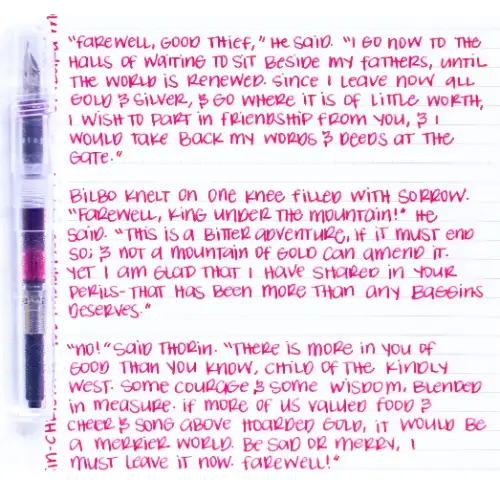 "Farewell, good thief," he said. "I go now to the
halls of waiting to sit beside my fathers, until
the world is renewed. Since I leave now all
gold & silver, & go where it is of little worth,
I wish to part in friendship from you, & I
would take back my words & deeds at the
gate."
Bilbo knelt on one knee filled with sorrow.
"Farewell, King under the Mountain!" he
said. "This is a bitter adventure, if it must end
so; & not a mountain of gold can amend it.
Yet I am glad that I have shared in your
perils- that has been more than any Baggins
deserves."
"No!" said Thorin. "There is more in you of
good than you know, child of the kindly
West. Some courage & some wisdom, blended
in measure. If more of us valued food &
cheer & song above hoarded gold, it would be
a merrier world. Be sad or merry, I
must leave it now. Farewell!"